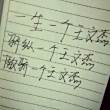 一生一个王文杰
解纵一个王文杰
做前一个王文杰